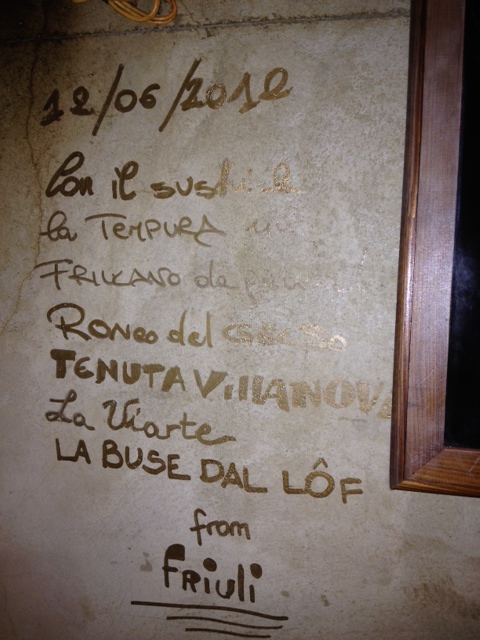 12/06/2012
Con il sushi
la TEMPURA
FRIULANO da
Ronco del GELSO
TENUTA VILLANOVA
La Viarte
LA BUSE DAL LÔF
from
FRIULI